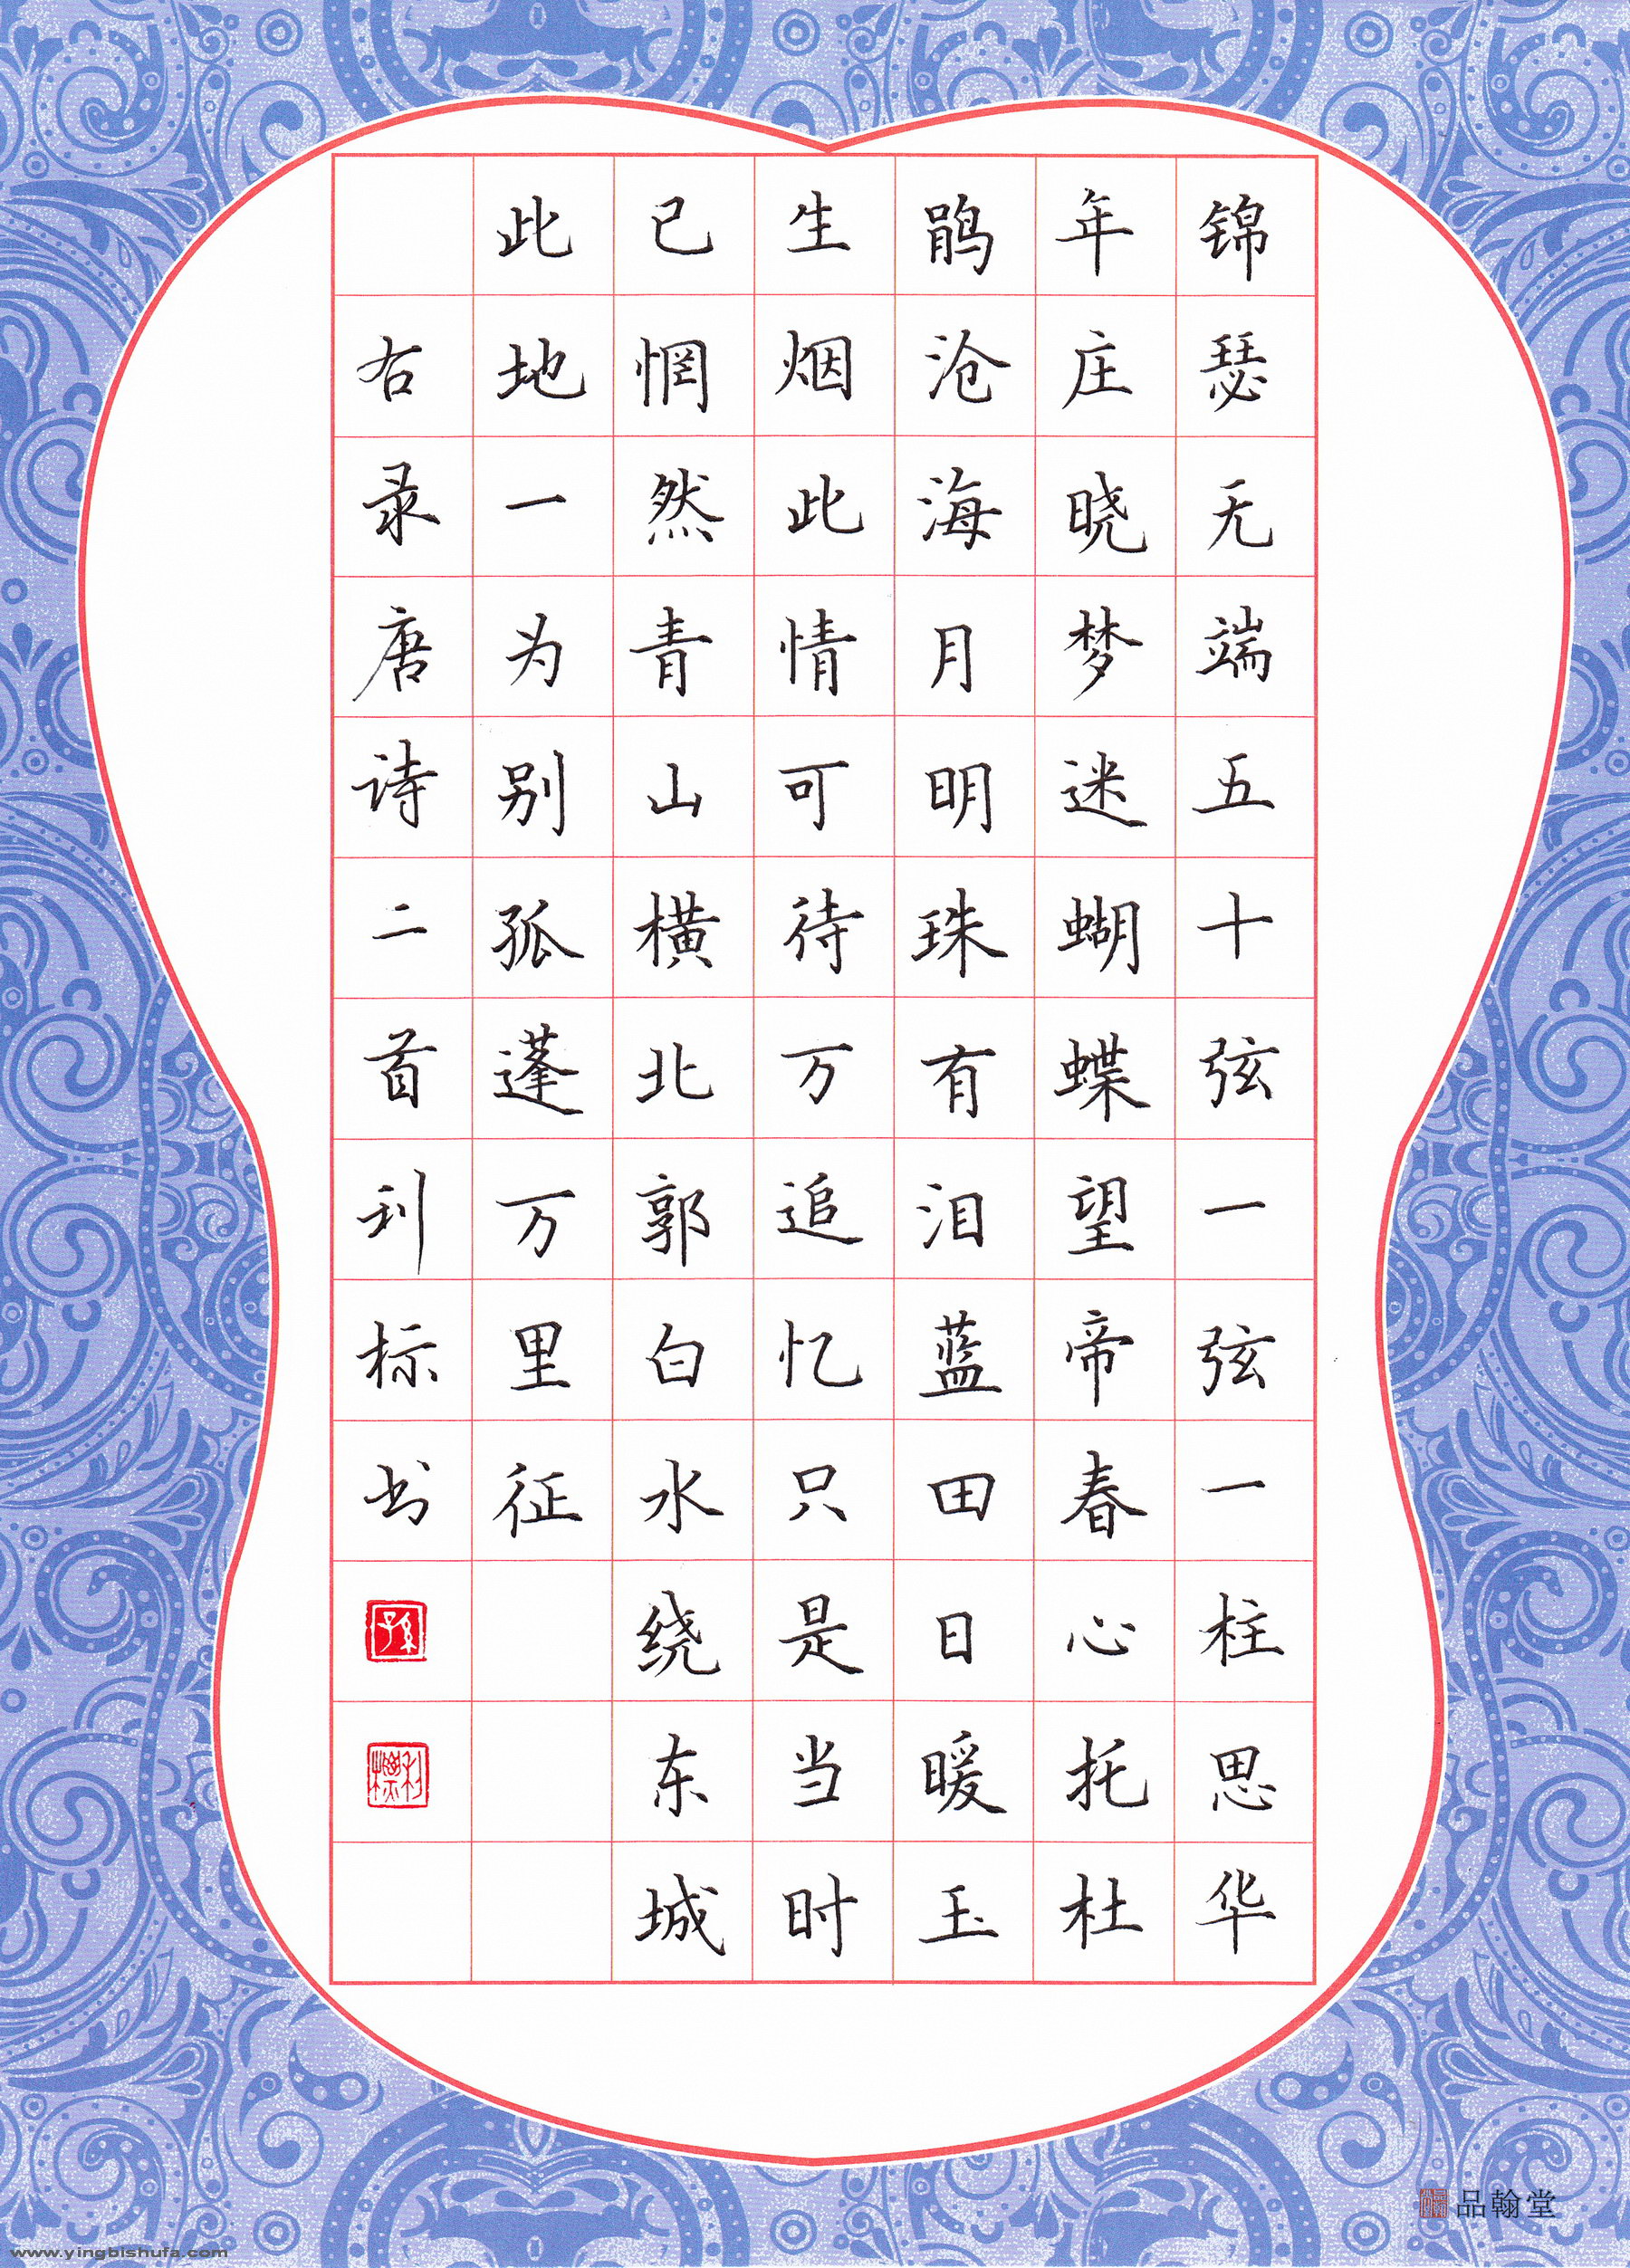 锦瑟无端五十弦一弦一柱思华
年庄晓梦迷蝴蝶望帝春心托杜
鹃沧海月明珠有泪蓝田日暖玉
生烟此情可待万追忆只是当时
已惘然青山横北郭白水绕东城
此地一为别孤蓬万里征
右录唐诗二首利标书
孫
利標
品翰堂
www.yingbishufa.com